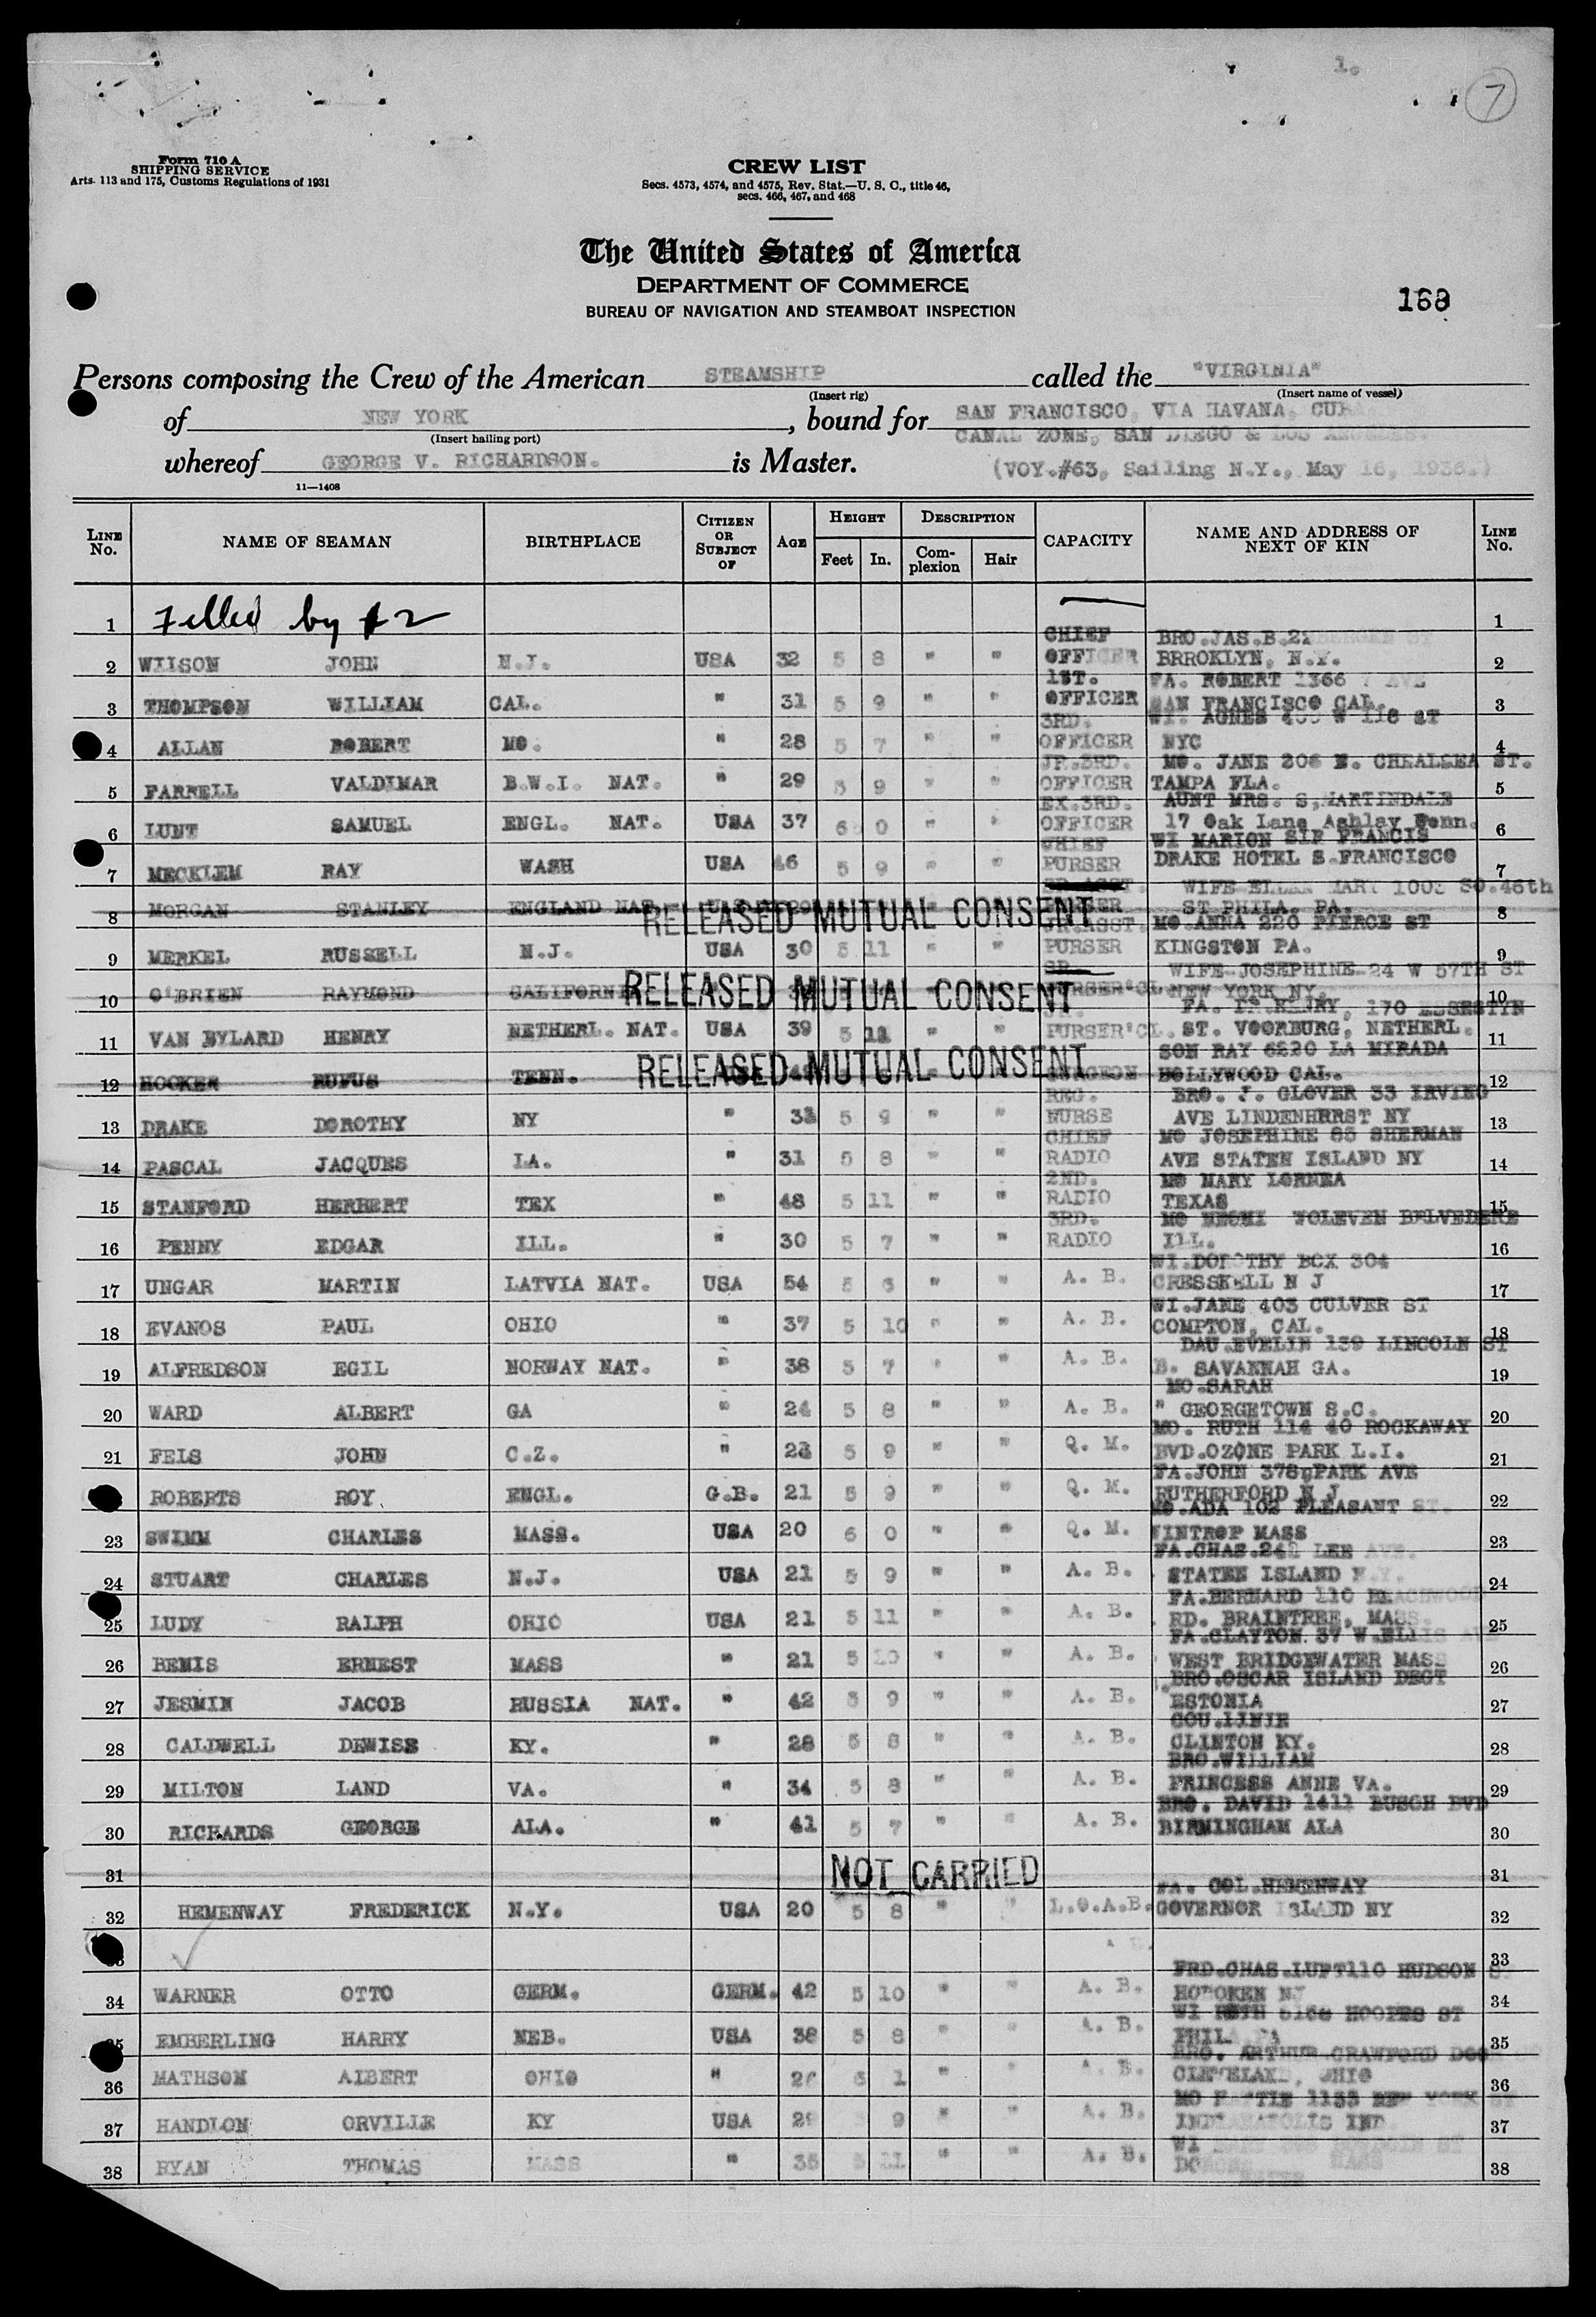 1.
7
Form 710 A
SHIPPING SERVICE
Arts. 113 and 175, Customs Regulations of 1931
CREW LIST
Secs. 4573, 4574, and 4575, Rev. Stat.—U. S. C., title 46,
secs. 466, 467, and 468
The United States of America
DEPARTMENT OF COMMERCE
BUREAU OF NAVIGATION AND STEAMBOAT INSPECTION
168
Persons composing the Crew of the American STEAMSHIP called the "VIRGINIA"
(Insert rig) (Insert name of vessel)
of NEW YORK, bound for SAN FRANCISCO, VIA HAVANA,
(Insert hailing port) CANAL ZONE, SAN DIEGO & LOS ANGELES.
whereof GEORGE V. RICHARDSON. is Master. (VOY.#63, Sailing N.Y., May 16, 1936.)
11—1408
LINE No. NAME OF SEAMAN BIRTHPLACE CITIZEN OR SUBJECT OF AGE HEIGHT Feet In. DESCRIPTION Complexion Hair CAPACITY NAME AND ADDRESS OF NEXT OF KIN LINE No.
1 Filled by #2 1
CHIEF BRO.JAS.B.
2 WILSON JOHN N.J. USA 32 5 8 " " OFFICER BRROKLYN, N.Y. 2
1ST. FA. ROBERT 1366 AVE
3 THOMPSON WILLIAM CAL. " 31 5 9 " " OFFICER SAN FRANCISCO CAL. 3
3RD. WI. AGNES W 116 ST
4 ALLAN ROBERT MO. " 28 5 7 " " OFFICER NYC 4
JR.3RD. MO. JANE 206 N. CHEALSEA ST.
5 FARRELL VALDIMAR B.W.I. NAT. " 29 5 9 " " OFFICER TAMPA FLA. 5
EX.3RD. AUNT MRS. S.MARTINDALE
6 LUNT SAMUEL ENGL. NAT. USA 37 6 0 " " OFFICER 17 Oak Lane Ashley Penn. 6
CHIEF WI MARION SIR FRANCIS
7 MECKLEM RAY WASH USA 46 5 9 " " PURSER DRAKE HOTEL S.FRANCISCO 7
WIFE ELLEN MARY 1003 SO.46th
8 MORGAN STANLEY ENGLAND NAT RELEASED MUTUAL CONSENT ST PHILA. PA. 8
JR.ASST. MO ANNA 220 PIERCE ST
9 MERKEL RUSSELL N.J. USA 30 5 11 " " PURSER KINGSTON PA. 9
SR WIFE JOSEPHINE 24 W 57TH ST
10 O'BRIEN RAYMOND RELEASED MUTUAL CONSENT NEW YORK NY. 10
170
11 VAN BYLARD HENRY NETHERL. NAT. USA 39 5 11 " " PURSER'CL. ST. VOORBURG, NETHERL. 11
SON RAY 6220 LA MIRADA
12 HOOKER RUFUS TENN. RELEASED MUTUAL CONSENT SURGEON HOLLYWOOD CAL. 12
REG. BRO. J. GLOVER 33 IRVING
13 DRAKE DOROTHY NY " 33 5 9 " " NURSE AVE LINDENHERRST NY 13
CHIEF MO JOSEPHINE 85 SHERMAN
14 PASCAL JACQUES LA. " 31 5 8 " " RADIO AVE STATEN ISLAND NY 14
2ND. MO MARY LORNEA
15 STANFORD HERBERT TEX " 48 5 11 " " RADIO TEXAS 15
3RD. MO WOLEVEN BELVEDERE
16 PENNY EDGAR ILL. " 30 5 7 " " RADIO ILL. 16
WI.DOROTHY BOX 304
17 UNGAR MARTIN LATVIA NAT. USA 54 5 6 " " A. B. CRESSKELL N J 17
WI.JANE 403 CULVER ST
18 EVANOS PAUL OHIO " 37 5 10 " " A. B. COMPTON, CAL. 18
DAU.EVELIN 139 LINCOLN ST
19 ALFREDSON EGIL NORWAY NAT. " 38 5 7 " " A. B. SAVANNAH GA. 19
MO.SARAH
20 WARD ALBERT GA " 24 5 8 " " A. B. " GEORGETOWN S.C. 20
MO. RUTH 114 40 ROCKAWAY
21 FELS JOHN C.Z. " 23 5 9 " " Q. M. BVD.OZONE PARK L.I. 21
FA.JOHN 378 PARK AVE
ROBERTS ROY ENGL. G.B. 21 5 9 " " Q. M. RUTHERFORD N J 22
MO.ADA 102 PLEASANT ST.
23 SWIMM CHARLES MASS. USA 20 6 0 " " Q. M. WINTROP MASS 23
FA.CHAS.241 LEE AVE.
24 STUART CHARLES N.J. USA 21 5 9 " " A. B. STATEN ISLAND N.Y. 24
FA.BERNARD 110 BEACHWOOD
25 LUDY RALPH OHIO USA 21 5 11 " " A. B. RD. BRAINTREE, MASS. 25
FA.CLAYTON 37 W.ELLIS AVE
26 BEMIS ERNEST MASS " 21 5 10 " " A. B. WEST BRIDGEWATER MASS 26
BRO.OSCAR ISLAND DEGT
27 JESMIN JACOB RUSSIA NAT. " 42 5 9 " " A. B. ESTONIA 27
COU.LINIE
28 CALDWELL DEWISS KY. " 28 5 8 " " A. B. CLINTON KY. 28
BRO.WILLIAM
29 MILTON LAND VA. " 34 5 8 " " A. B. PRINCESS ANNE VA. 29
BRO. DAVID 1411 BUSCH BVD
30 RICHARDS GEORGE ALA. " 41 5 7 " " A. B. BIRMINGHAM ALA 30
31 NOT CARRIED 31
FA. COL.HEMENWAY
32 HEMENWAY FREDERICK N.Y. USA 20 5 8 " " L.O.A.B. GOVERNOR ISLAND NY 32
33
FRD.CHAS.LUFT110 HUDSON
34 WARNER OTTO GERM. GERM. 42 5 10 " " A. B. HOBOKEN NJ 34
WI RUTH HOOPES ST
EMBERLING HARRY NEB. USA 38 5 8 " " A. B. PHILA PA 35
BRO. ARTHUR CRAWFORD
36 MATHSON ALBERT OHIO " 1 " " A. B. CLEVELAND, OHIO 36
MO HATTIE 1133 NEW YORK ST
37 HANDLON ORVILLE KY USA 9 " " A. B. INDIANAPOLIS IND 37
WI
38 RYAN THOMAS MASS " 35 5 11 " " A. B. MASS 38